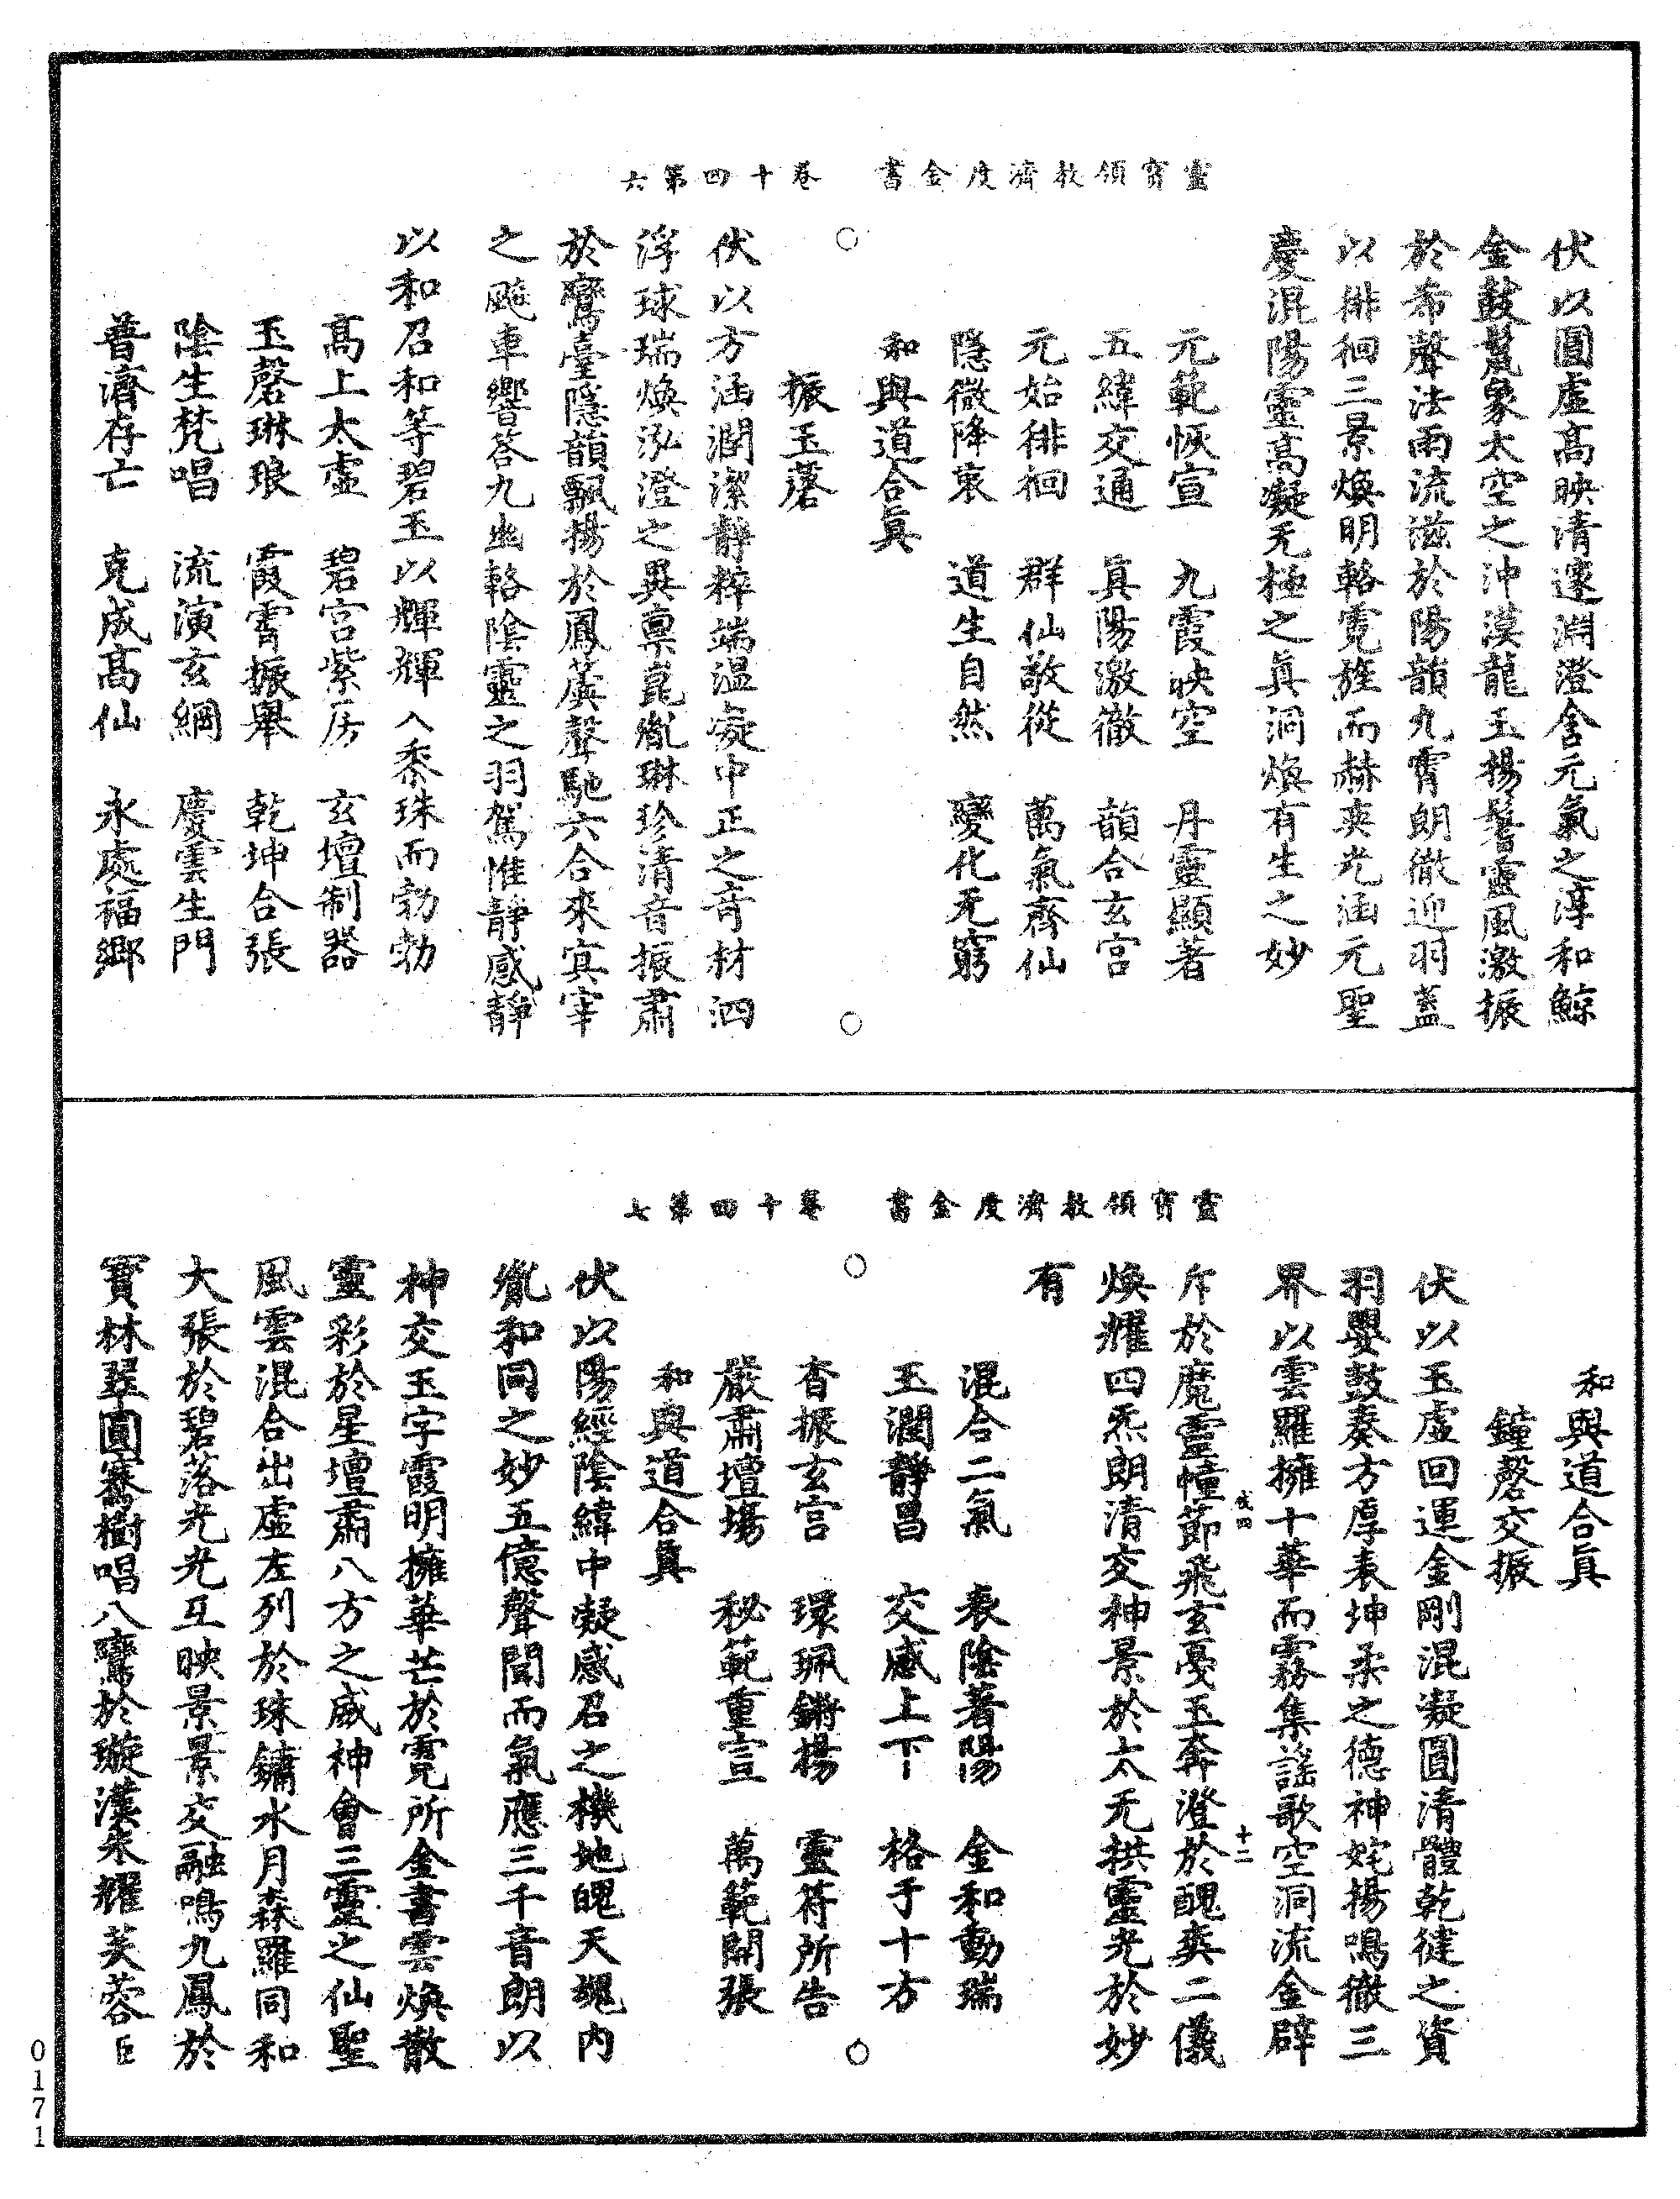 靈寶領教濟度金書　卷十四第六
伏以圓虛高映清邃淵澄含元氣之淳和鯨
金鼓鬣象太空之沖漠龍玉揚鬐靈風激振
於希聲法雨流滋於陽韻九霄朗徹迎羽蓋
以徘徊三景煥明輅霓旌而赫奕光涵元聖
慶混陽靈高凝无極之眞洞煥有生之妙
元範恢宣　九霞映空　丹靈顯著
五緯交通　眞陽激徹　韻合玄宮
元始徘徊　群仙敬從　萬氣齊仙
隱微降衷　道生自然　變化无窮
和與道合眞
振玉磬
伏以方涵潤潔靜粹端温凝中正之奇材泗
浮球瑞煥泓澄之異稟崑胤琳珍清音振肅
於鸞臺隱韻飄揚於鳳蓂聲馳六合來㝠宰
之飈車響答九幽輅陰靈之羽駕惟靜感靜
以和召和等碧玉以輝輝入黍珠而勃勃
高上太虛　碧宮紫房　玄壇制器
玉磬琳琅　霞霄振舉　乾坤合張
陰生梵唱　流演玄綱　慶雲生門
普濟存亡　克成高仙　永處福鄉
靈寶領教濟度金書　卷十四第七
和與道合眞
鐘磬交振
伏以玉虛回運金剛混凝圓清體乾健之資
羽嬰鼓奏方厚表坤柔之德神姹揚鳴徹三
界以雲羅擁十華而霧集謠歌空洞流金辟
十二
斥於魔靈幢節飛玄戛玉奔澄於醜爽二儀
煥耀四炁朗清交神景於太无拱靈光於妙
有
混合二氣　表陰著陽　金和動瑞
玉潤靜昌　交感上下　格于十方
杳振玄宮　環珮鏘揚　靈符所告
嚴肅壇場　秘範重宣　萬範開張
和與道合眞
伏以陽經陰緯中凝感召之機地魄天魂内
胤和同之妙五億聲聞而氣應三千音朗以
神交玉字霞明擁華芒於霓所金書雲煥散
靈彩於星壇肅八方之威神會三靈之仙聖
風雲混合出虛左列於珠鏞水月森羅同和
大張於碧落光光互映景景交融鳴九鳳於
寶林翠圓騫樹唱八鸞於璇漢朱耀芙蓉臣
0171